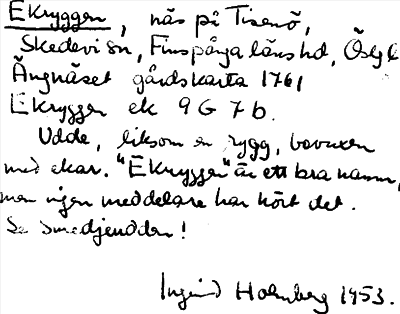 Ekryggen, näs på Tisenö,
Skedevi sn, Finspånga läns hd, Östg l
Ängnäset gårdskarta 1761
Ekryggen ek 9 G 7 b.
Udde, liksom en rygg, bevuxen
med ekar. "Ekryggen" är ett bra namn,
men ingen meddelare har hört det.
Se Smedjeudden!
Ingrid Holmberg 1953.